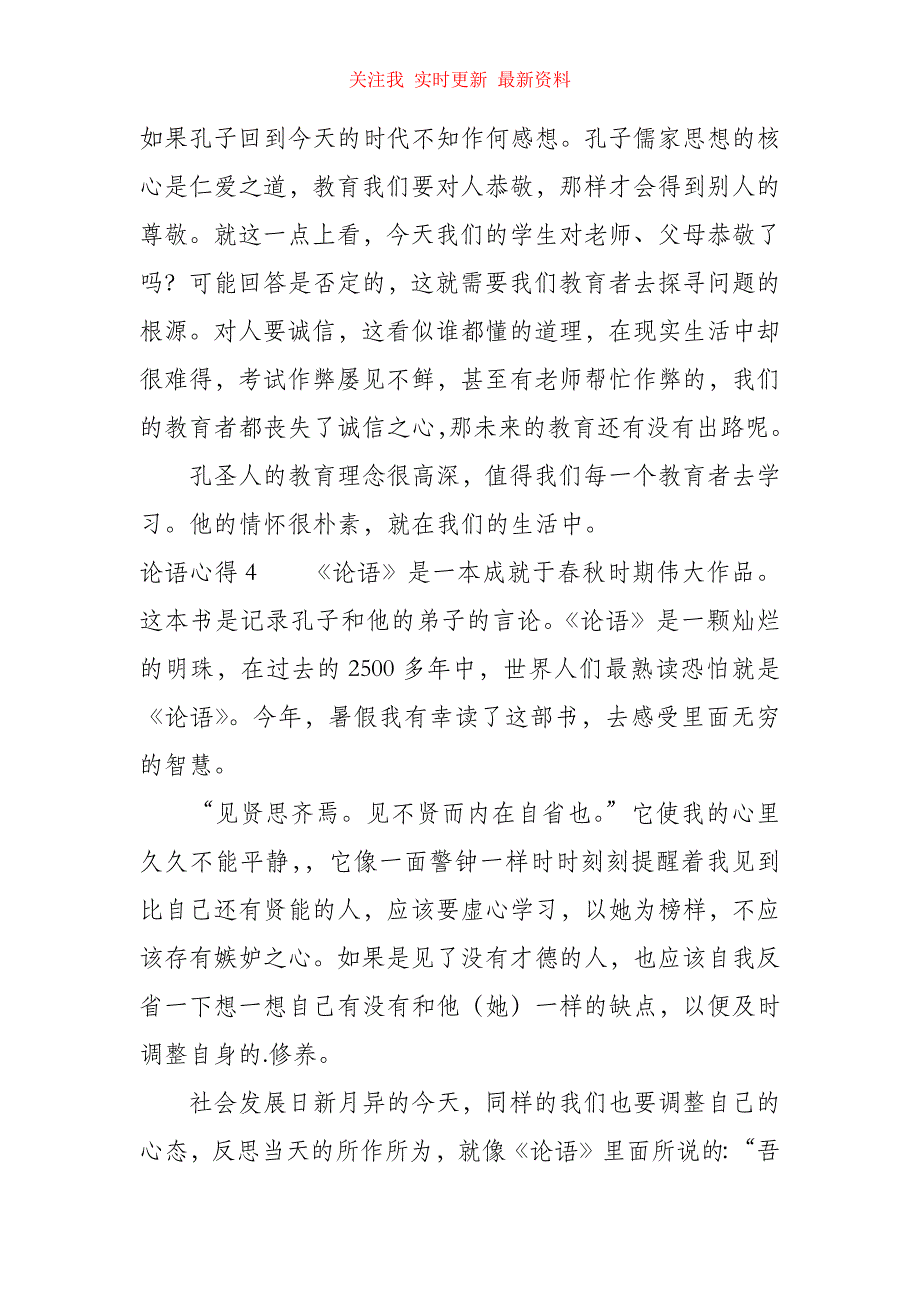 关注我 实时更新 最新资料
如果孔子回到今天的时代不知作何感想。孔子儒家思想的核
心是仁爱之道，教育我们要对人恭敬，那样才会得到别人的
尊敬。就这一点上看，今天我们的学生对老师、父母恭敬了
吗？可能回答是否定的，这就需要我们教育者去探寻问题的
根源。对人要诚信，这看似谁都懂的道理，在现实生活中却
很难得，考试作弊屡见不鲜，甚至有老师帮忙作弊的，我们
的教育者都丧失了诚信之心，那未来的教育还有没有出路呢。
孔圣人的教育理念很高深，值得我们每一个教育者去学
习。他的情怀很朴素，就在我们的生活中。
论语心得 4 《论语》是一本成就于春秋时期伟大作品。
这本书是记录孔子和他的弟子的言论。《论语》是一颗灿烂
的明珠，在过去的 2500 多年中，世界人们最熟读恐怕就是
《论语》。今年，暑假我有幸读了这部书，去感受里面无穷
的智慧。
“见贤思齐焉。见不贤而内在自省也。”它使我的心里
久久不能平静,，它像一面警钟一样时时刻刻提醒着我见到
比自己还有贤能的人，应该要虚心学习，以她为榜样，不应
该存有嫉妒之心。如果是见了没有才德的人，也应该自我反
省一下想一想自己有没有和他（她）一样的缺点，以便及时
调整自身的.修养。
社会发展日新月异的今天，同样的我们也要调整自己的
心态，反思当天的所作所为，就像《论语》里面所说的：“吾